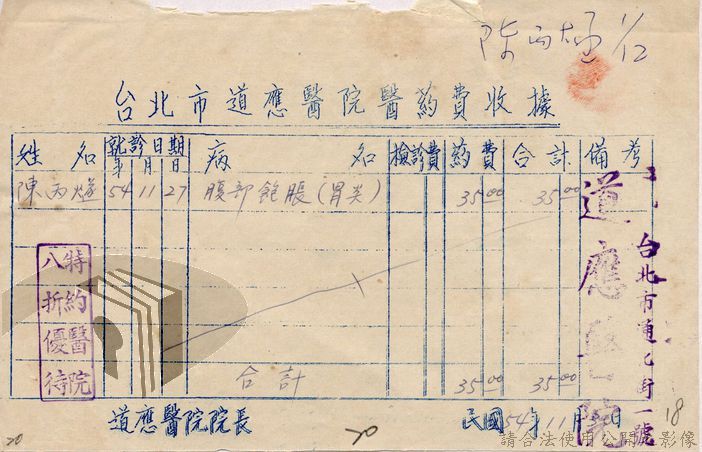 陳丙燧 1/12
台北市道應醫院醫葯費收據
姓名 就診日期 病名 檢診費 葯費 合計 備考
年 月 日
陳丙燧 54 11 27 腹部飽脹(胃炎) 35.00 35.00
特約醫院
八折優待
合計 35.00 35.00
道應醫院院長 民國54年11月 日
道應醫院
台北市通化街一號
18
20
20
請合法使用公開 影像